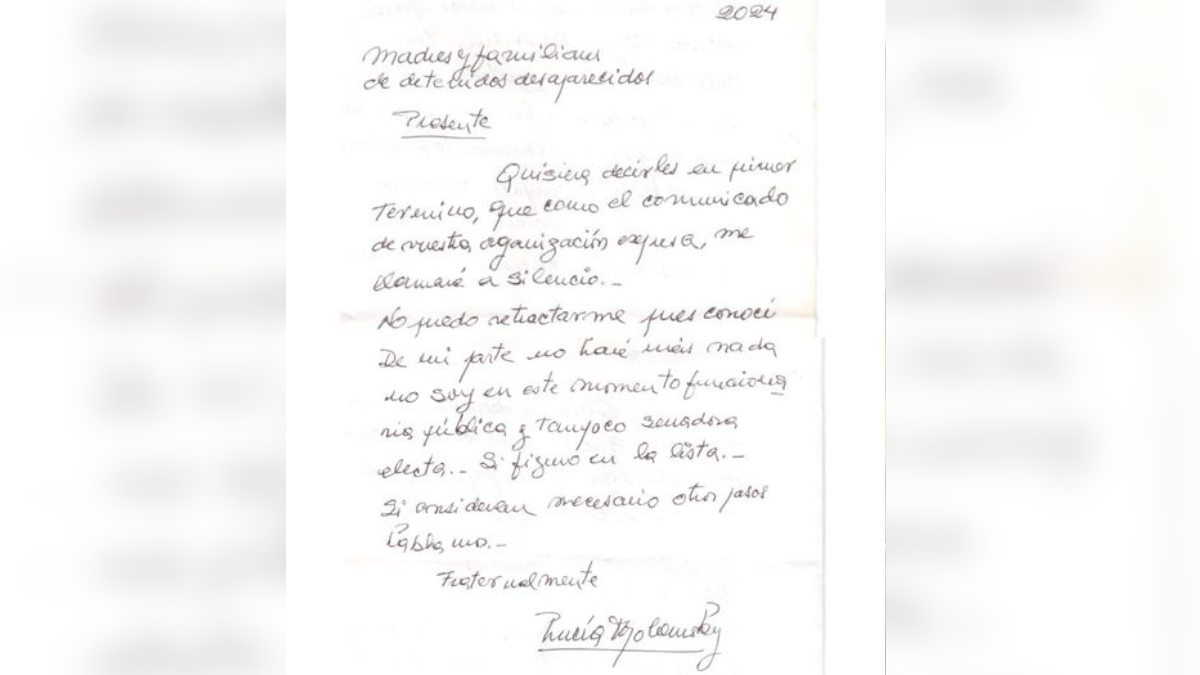 2024
Madres y familiares
de detenidos desaparecidos
Presente
Quisiera decirles en primer
termino, que como el comunicado
de vuestra organización expresa, me
llamaré a silencio._
No puedo retractarme pues conocí
De mi parte no haré más nada
no soy en este momento funciona
ria pública y tampoco senadora
electa._ Si figuro en la lista._
Si consideran necesario otros pasos
hablamos._
Fraternalmente
Lucía Topolansky